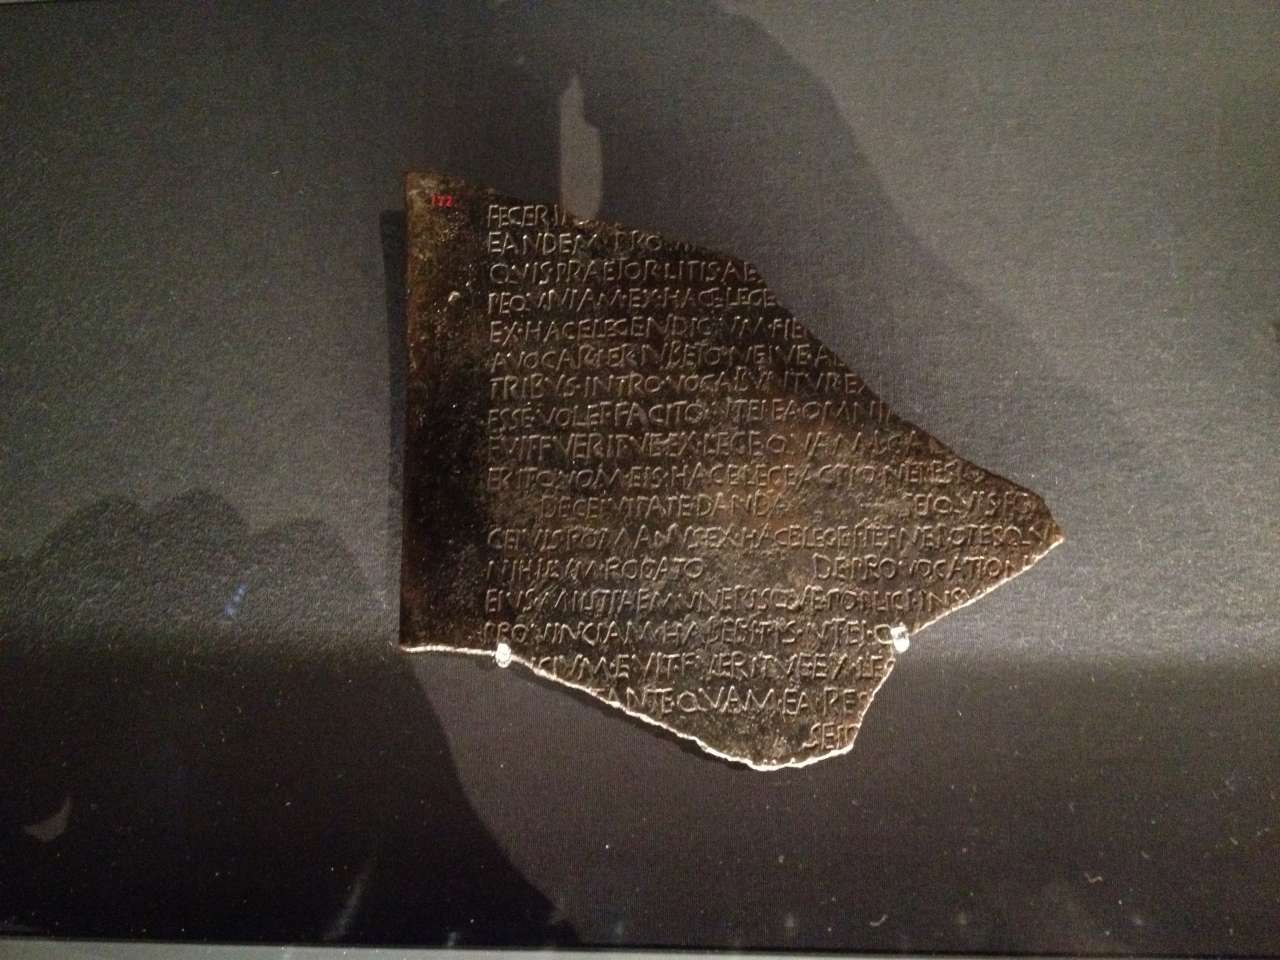 122
FECERI
EANDEM·PRO
QVIS·PRAETOR·LITIS·AE
PEQVNIAM·EX·HACE·LEGE
EX·HACE·LEGE·IVDICIVM·FIE
AVOCARIER·IVBETO·NEIVE·A
TRIBVS·INTRO·VOCABVNTVR·EX
ESSE·VOLET·FACITO·VTEI·EA·OMNI
FVIT·FVERITVE·EX·LEGE·QVAM
ERITO·QVOM·EIS·HACE·LEGE·ACTIO·NEI·ES
DE·CEIVITATE·DANDA SEI·QVIS
CEIVIS·ROMANVS·EX·HACE·LEGE·FIET·NEPOTESQV
NIHILVM·ROGATO DE·PROVOCATION
EIVS·MILITIAE·MVNERIS·POPLICI·IN·SV
PROVINCIAM·HABEBITIS·VTEI·
CIVM·FVIT·FVERITVE·EX·LE
ANTE·QVAM·EA·RE
SEI